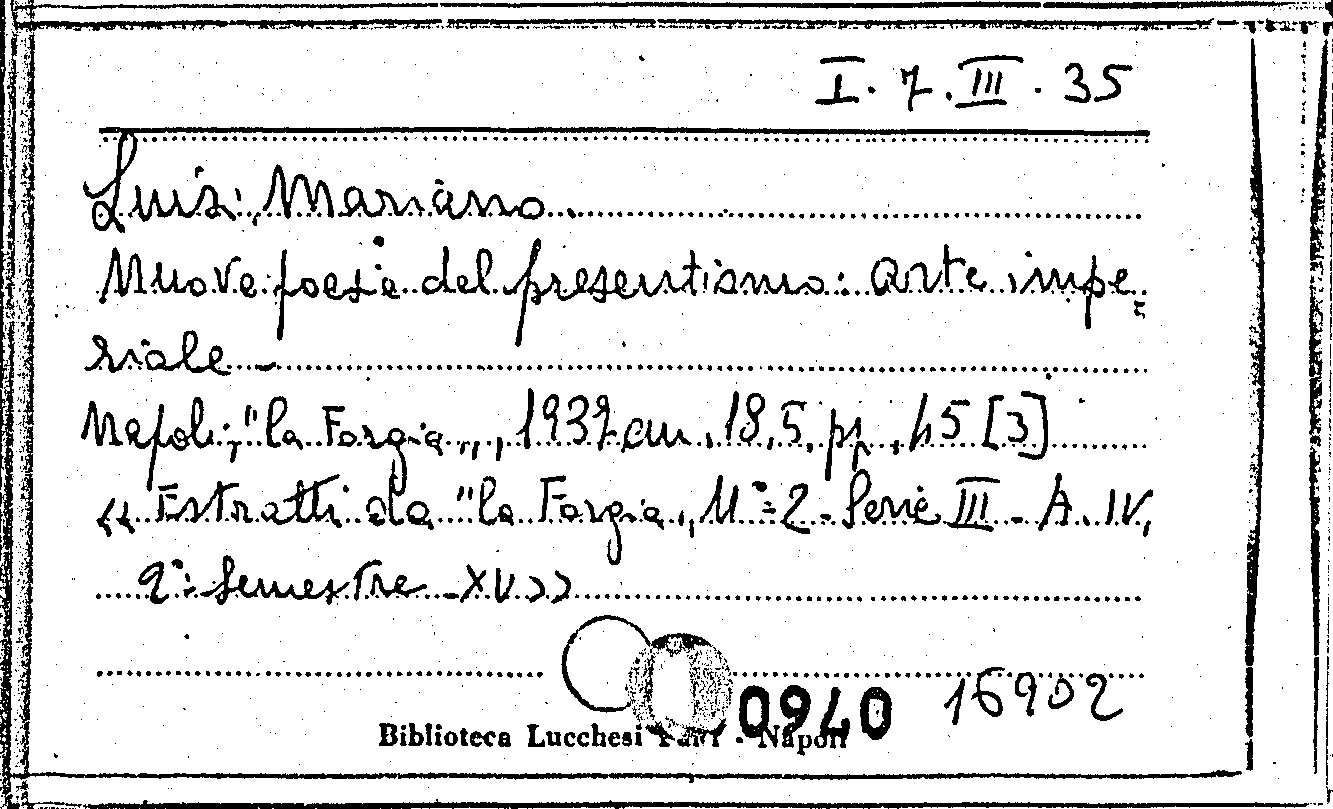 I. 7. III. 35
Luisi, Mariano
Nuove poesie del presentismo: arte impe=
riale –
Napoli, "la Forgia„, 1937 cm. 18,5, pp. 45 [3]
«Estratti da "la Forgia„ N° 2 – Serie III – A. IV,
2° Semestre – XV»
0940 16902
Biblioteca Lucchesi Palli - Napoli